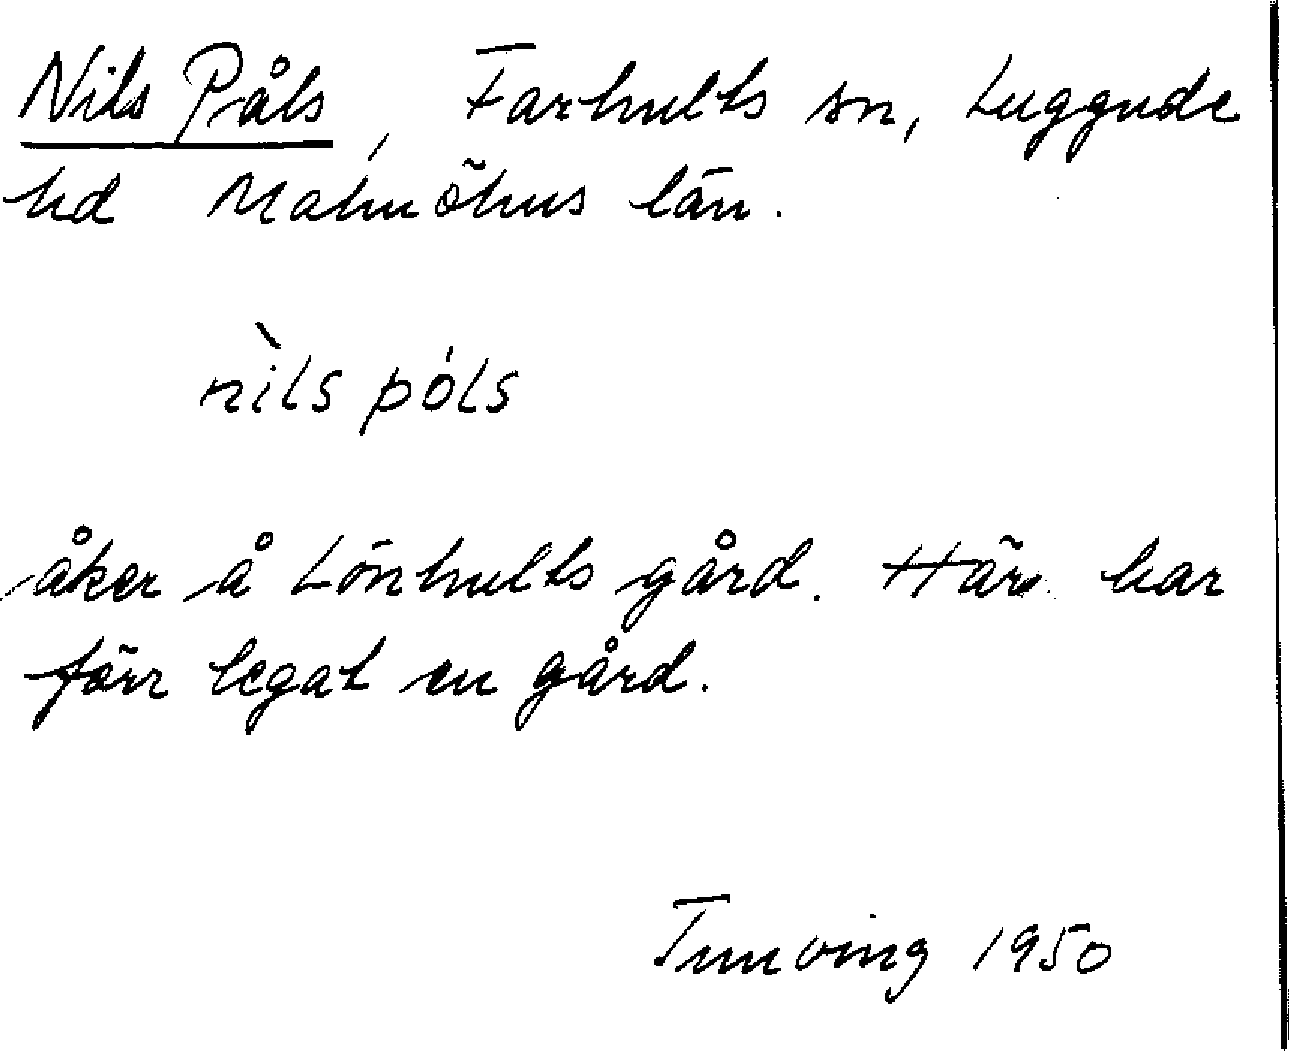 Nils Påls, Farhults sn, Luggude
hd Malmöhus län.
nìls póls
åker å Lönhults gård. Här har
förr legat en gård.
Tunving 1950